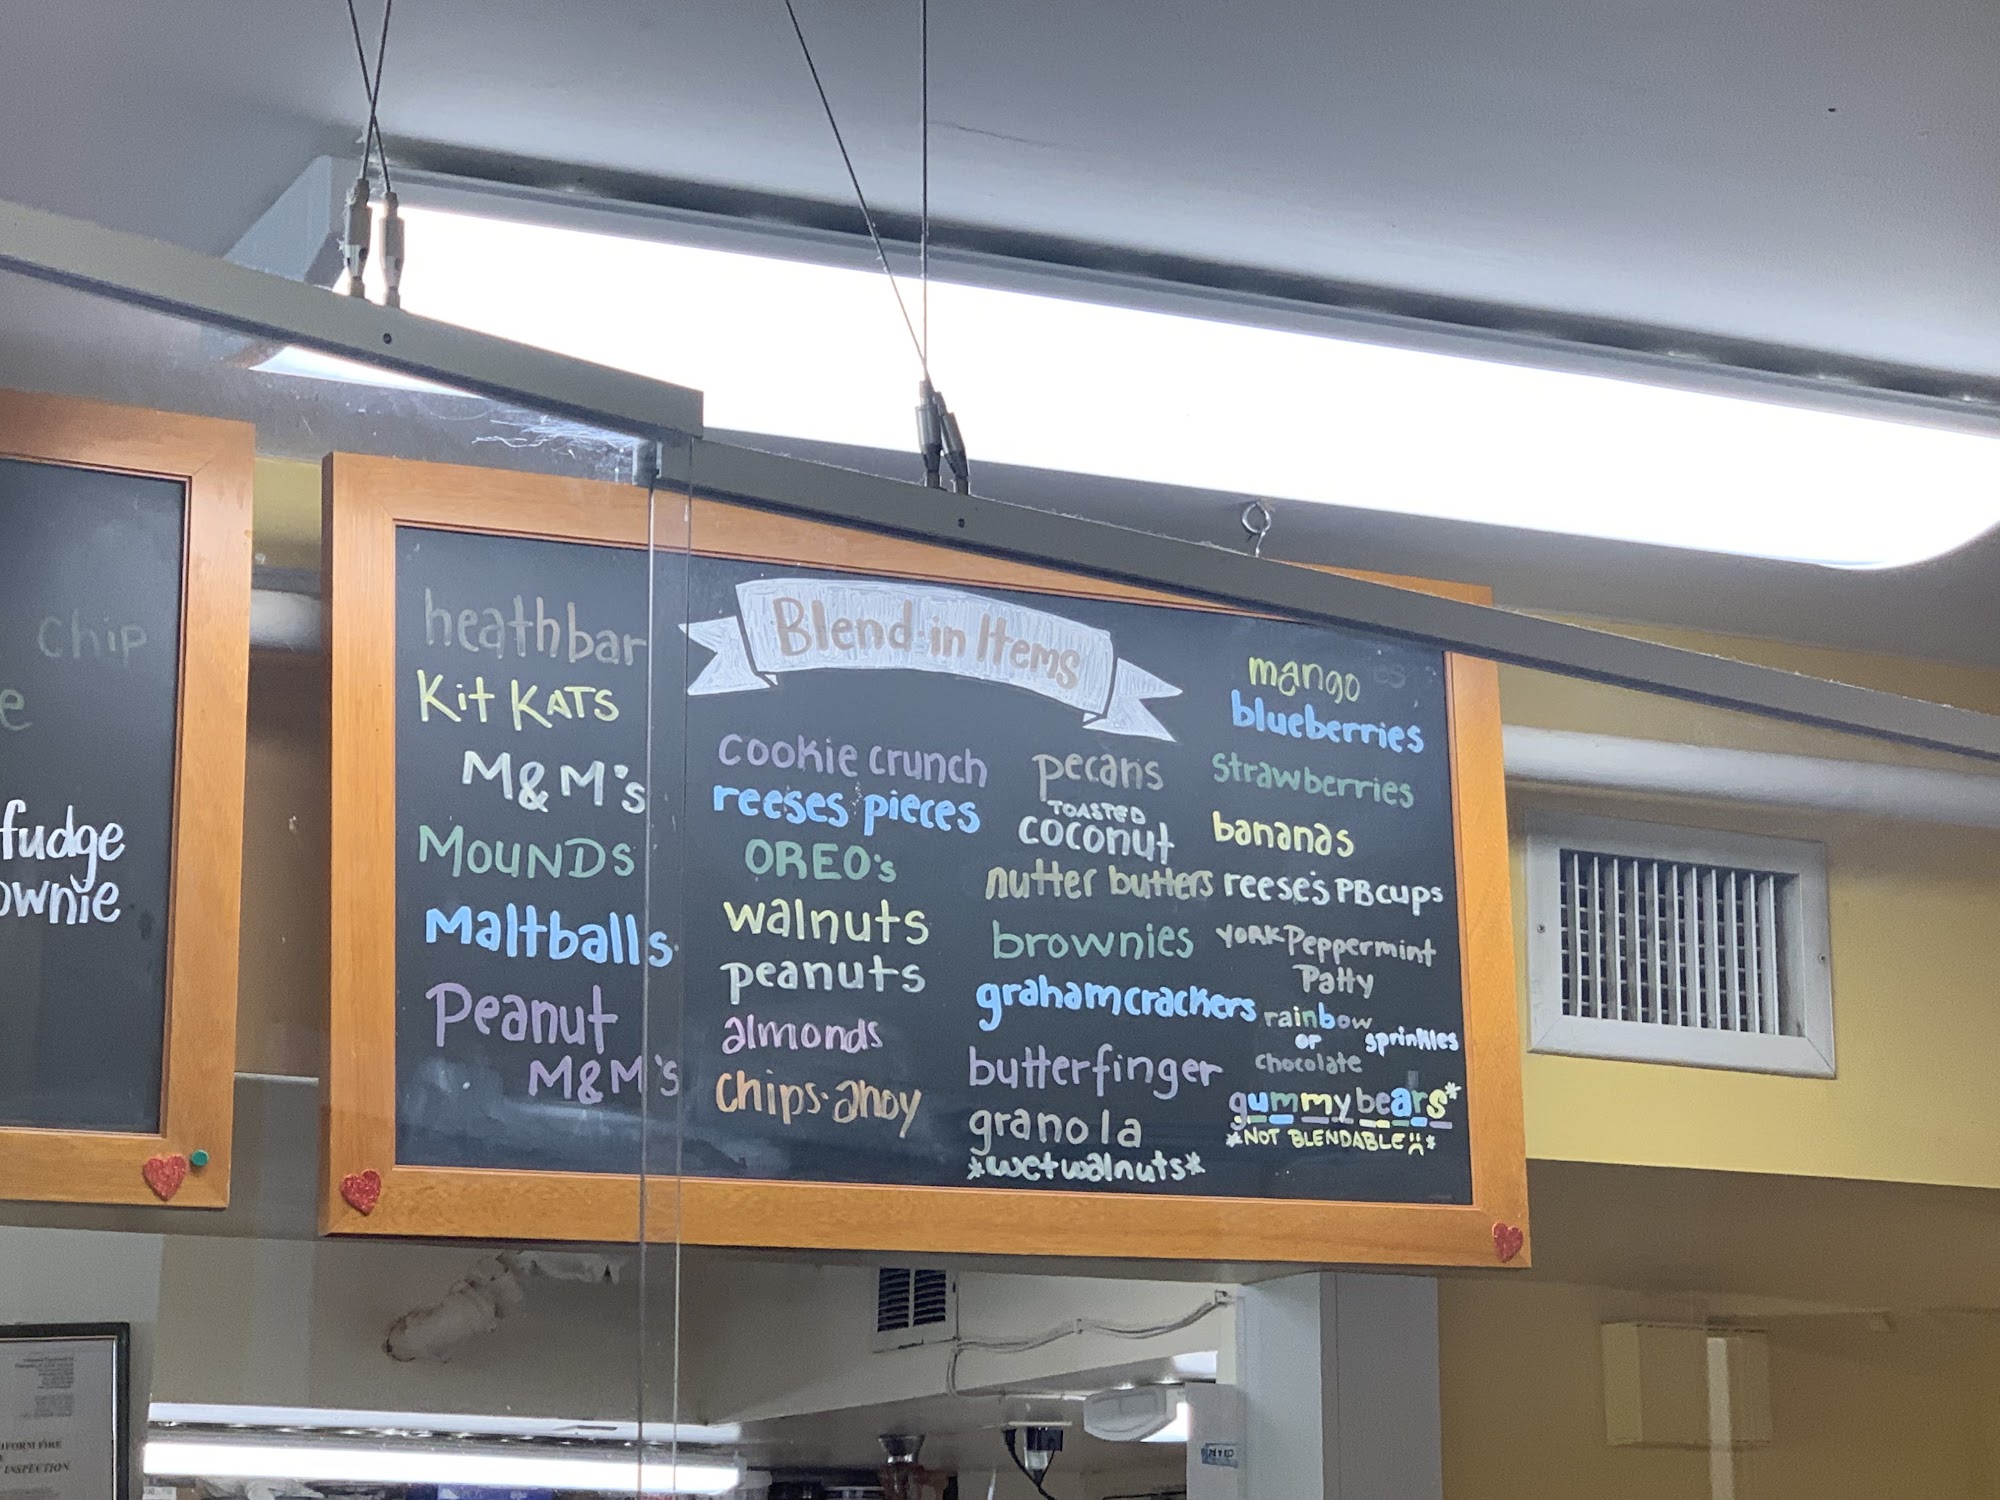 chip
e
fudge
ownie
Blend in Items
heathbar
Kit KATS
M&M's
MOUNDS
Maltballs
Peanut
M&M's
cookie crunch
reeses pieces
OREO's
walnuts
peanuts
almonds
chips·ahoy
pecans
TOASTED
coconut
nutter butters
brownies
grahamcrackers
butterfinger
granola
*wetwalnuts*
mango
es
blueberries
strawberries
bananas
reese's PB cups
YORK Peppermint
Patty
rainbow
or sprinkles
chocolate
gummybears*
*NOT BLENDABLE☹*
IFORM FIRE
INSPECTION